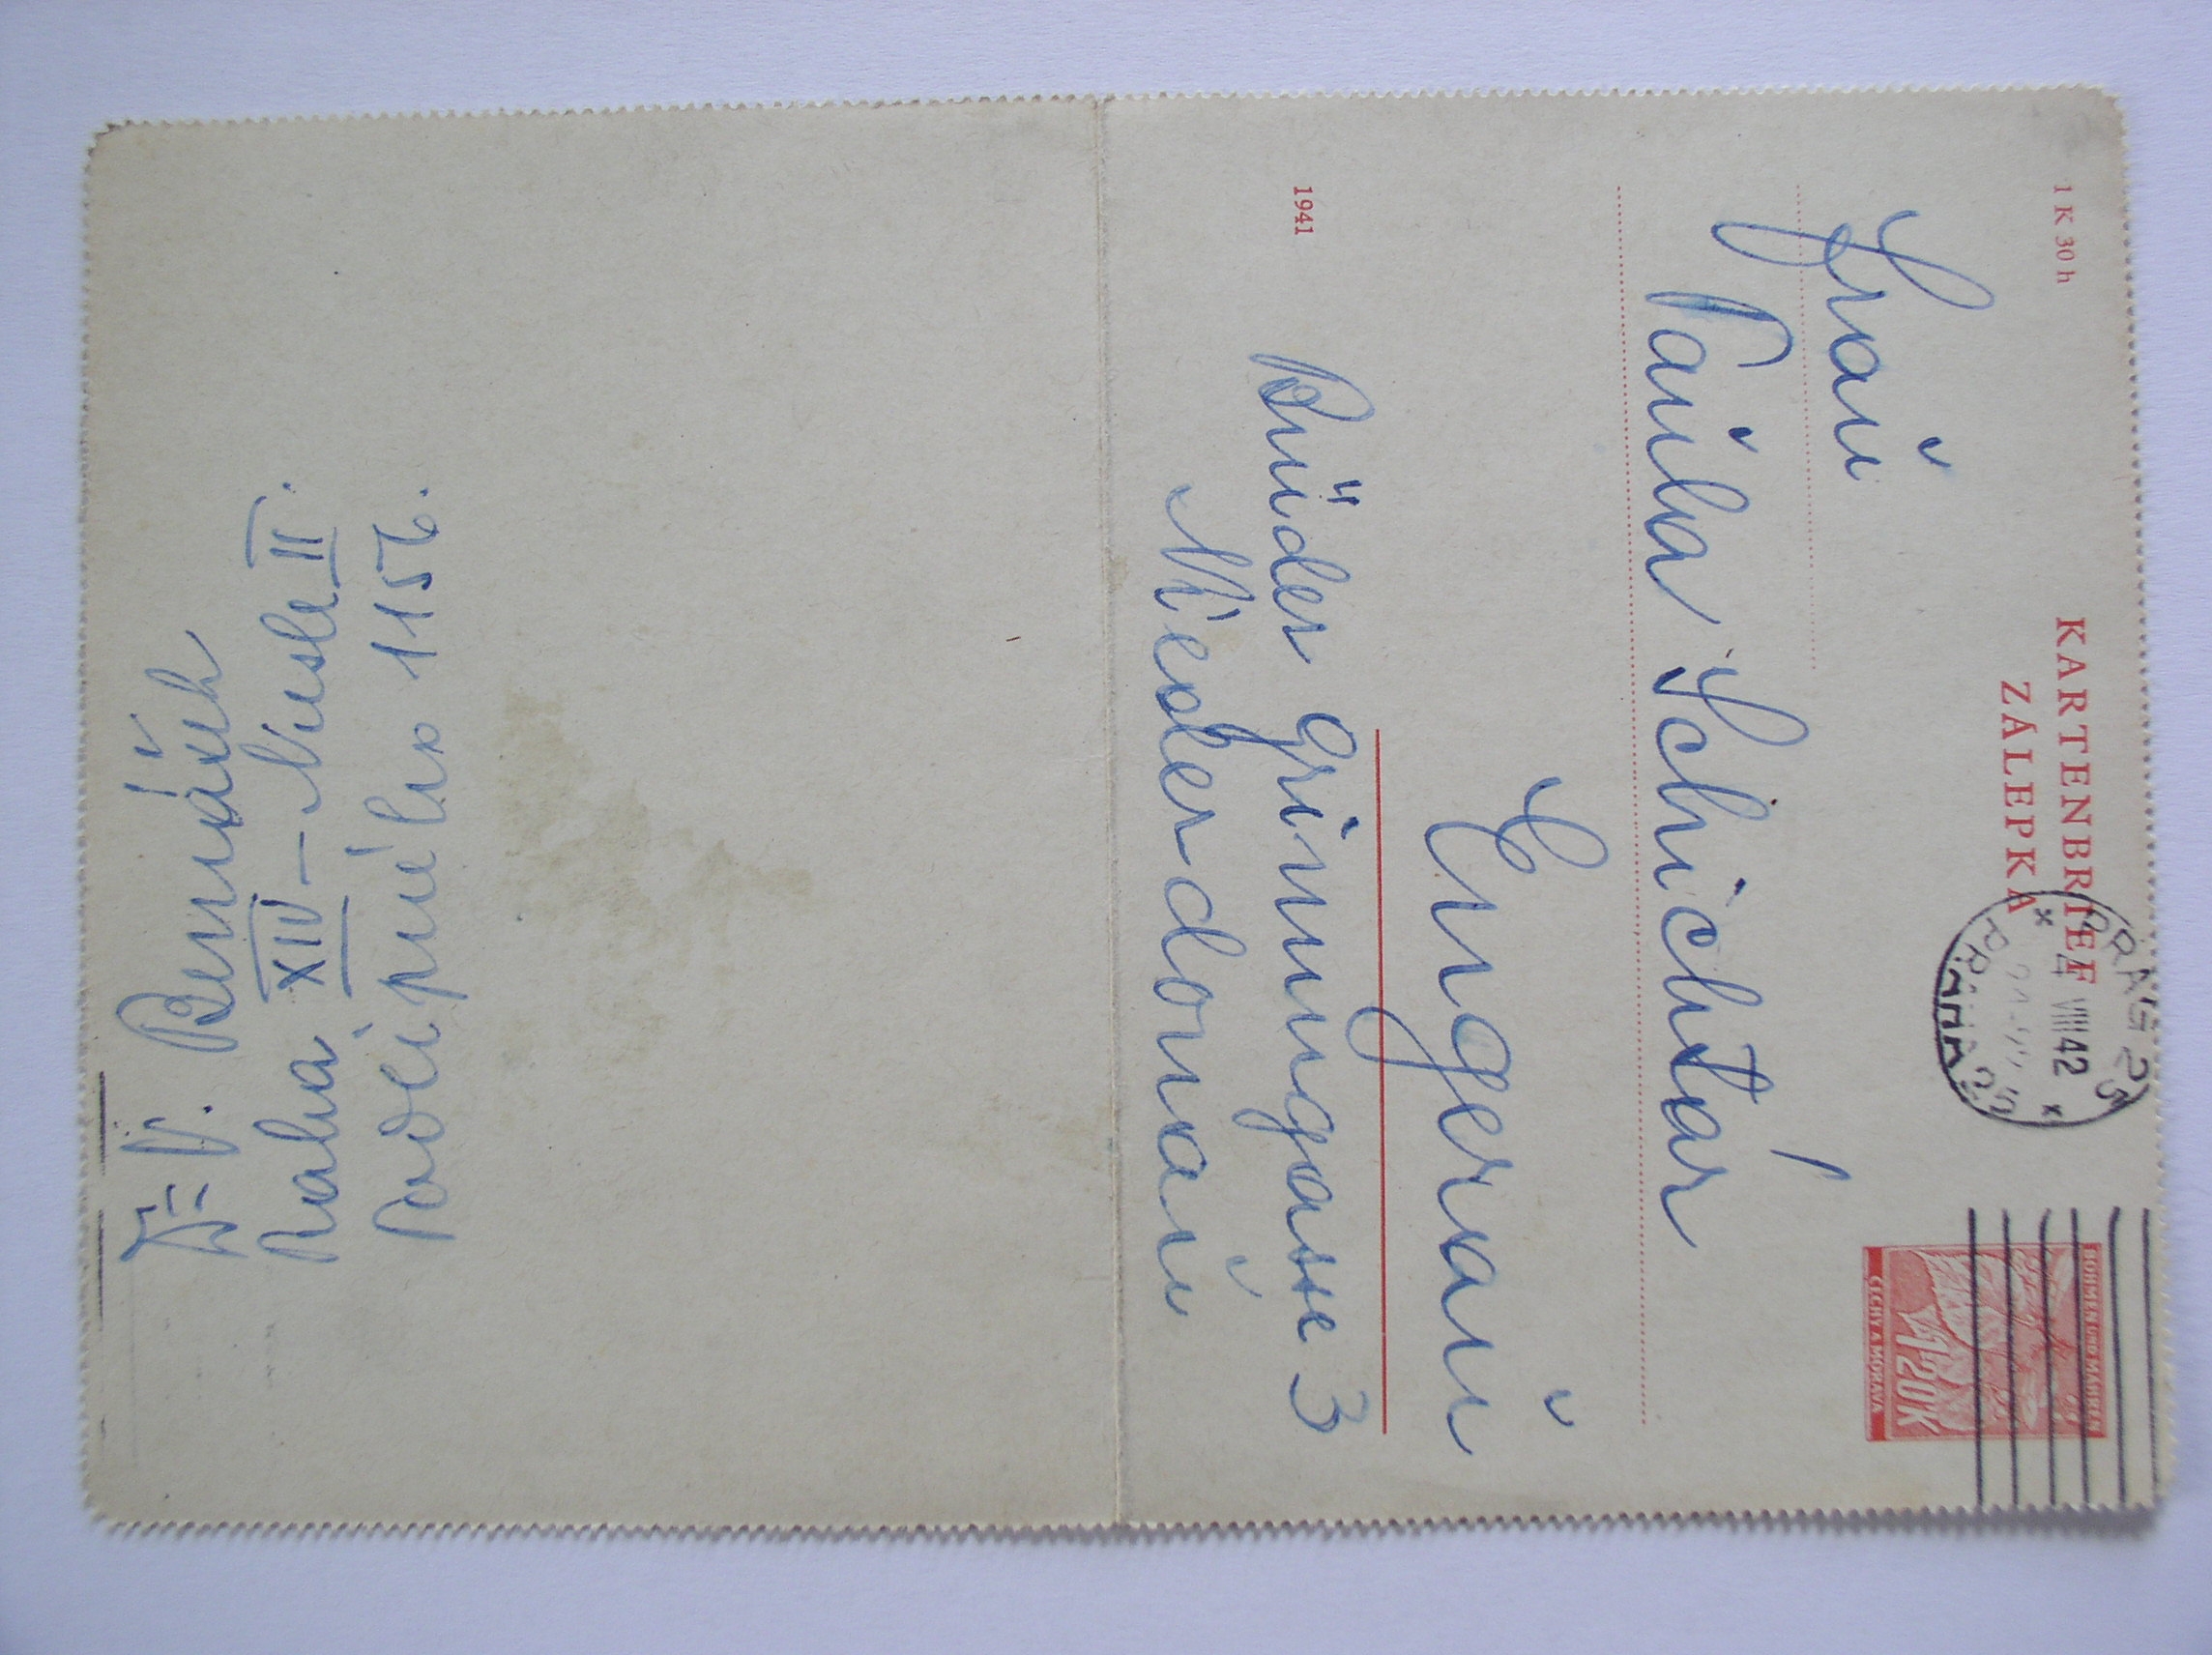 1 K 30 h
KARTENBRIEF
ZÁLEPKA
PRAG 25
4 VIII 42
PRAHA 25
BÖHMEN UND MÄHREN
1'20 K
ČECHY A MORAVA
Frau
Paula Schichtar
Engerau
1941
Brüder Grimmgasse 3
Niederdonau
V. Bernášek
Praha XIV – Nusle II.
1156.